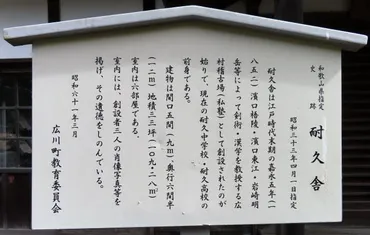 和歌山県指定
史跡
耐久舎
昭和三十三年四月一日指定
耐久舎は江戸時代末期の嘉永五年(一
八五二)濱口梧陵・濱口東江・岩崎明
岳等によって剣術・漢学を教授する広
村稽古場(私塾)として創設されたのが
始りで、現在の耐久中学校・耐久高校の
前身である。
建物は間口五間(九m)、奥行六間半
(一二m)地積三三坪(一〇九・二八㎡)
室内は六部屋である。
室内には、創設者三人の肖像写真等を
掲げ、その遺徳をしのんでいる。
昭和六十一年三月
広川町教育委員会